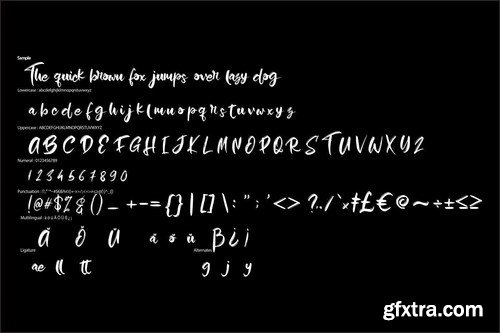 Sample
The quick brown fox jumps over lazy dog
Lowercase : abcdefghijklmnopqrstuvwxyz
a b c d e f g h i j k l m n o p q r s t u v w x y z
Uppercase : ABCDEFGHIJKLMNOPQRSTUVWXYZ
A B C D E F G H I J K L M N O P Q R S T U V W X Y Z
Numeral : 0123456789
1 2 3 4 5 6 7 8 9 0
Punctuation :
!@#$%&()_ +-={}|[]\:";'<> ?,./`×‡£€@~÷±≤≥
Multilingual : ä ö ü Ä Ö Ü ß ¿ ¡
Ä Ö Ü ä ö ü β¿¡
Ligature Alternates
ae ll tt g j y
gfxtra.com